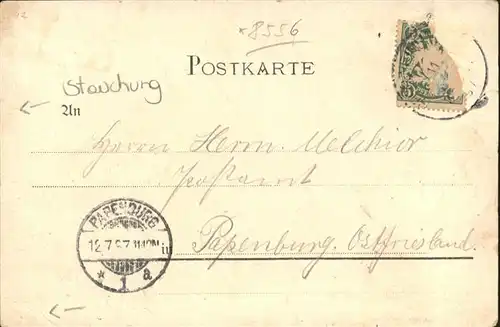 *8556
POSTKARTE
Stauchung
An
Herrn Herm. Melchior
Postamt
Papenburg Ostfriesland.
PAPENBURG
12.7.97.11-12N
* 1 a